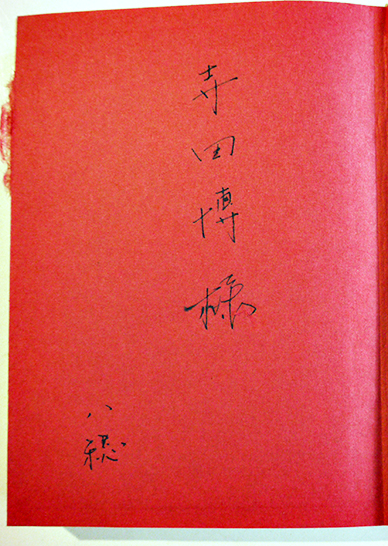 寺田博様
八穂